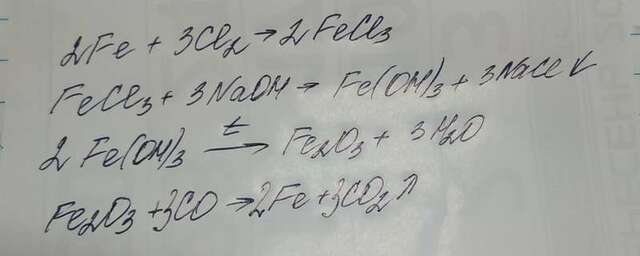 2Fe + 3Cl₂ → 2FeCl₃
FeCl₃ + 3NaOH → Fe(OH)₃ + 3NaCl ↓
2Fe(OH)₃ →ᵗ Fe₂O₃ + 3H₂O
Fe₂O₃ + 3CO → 2Fe + 3CO₂ ↑